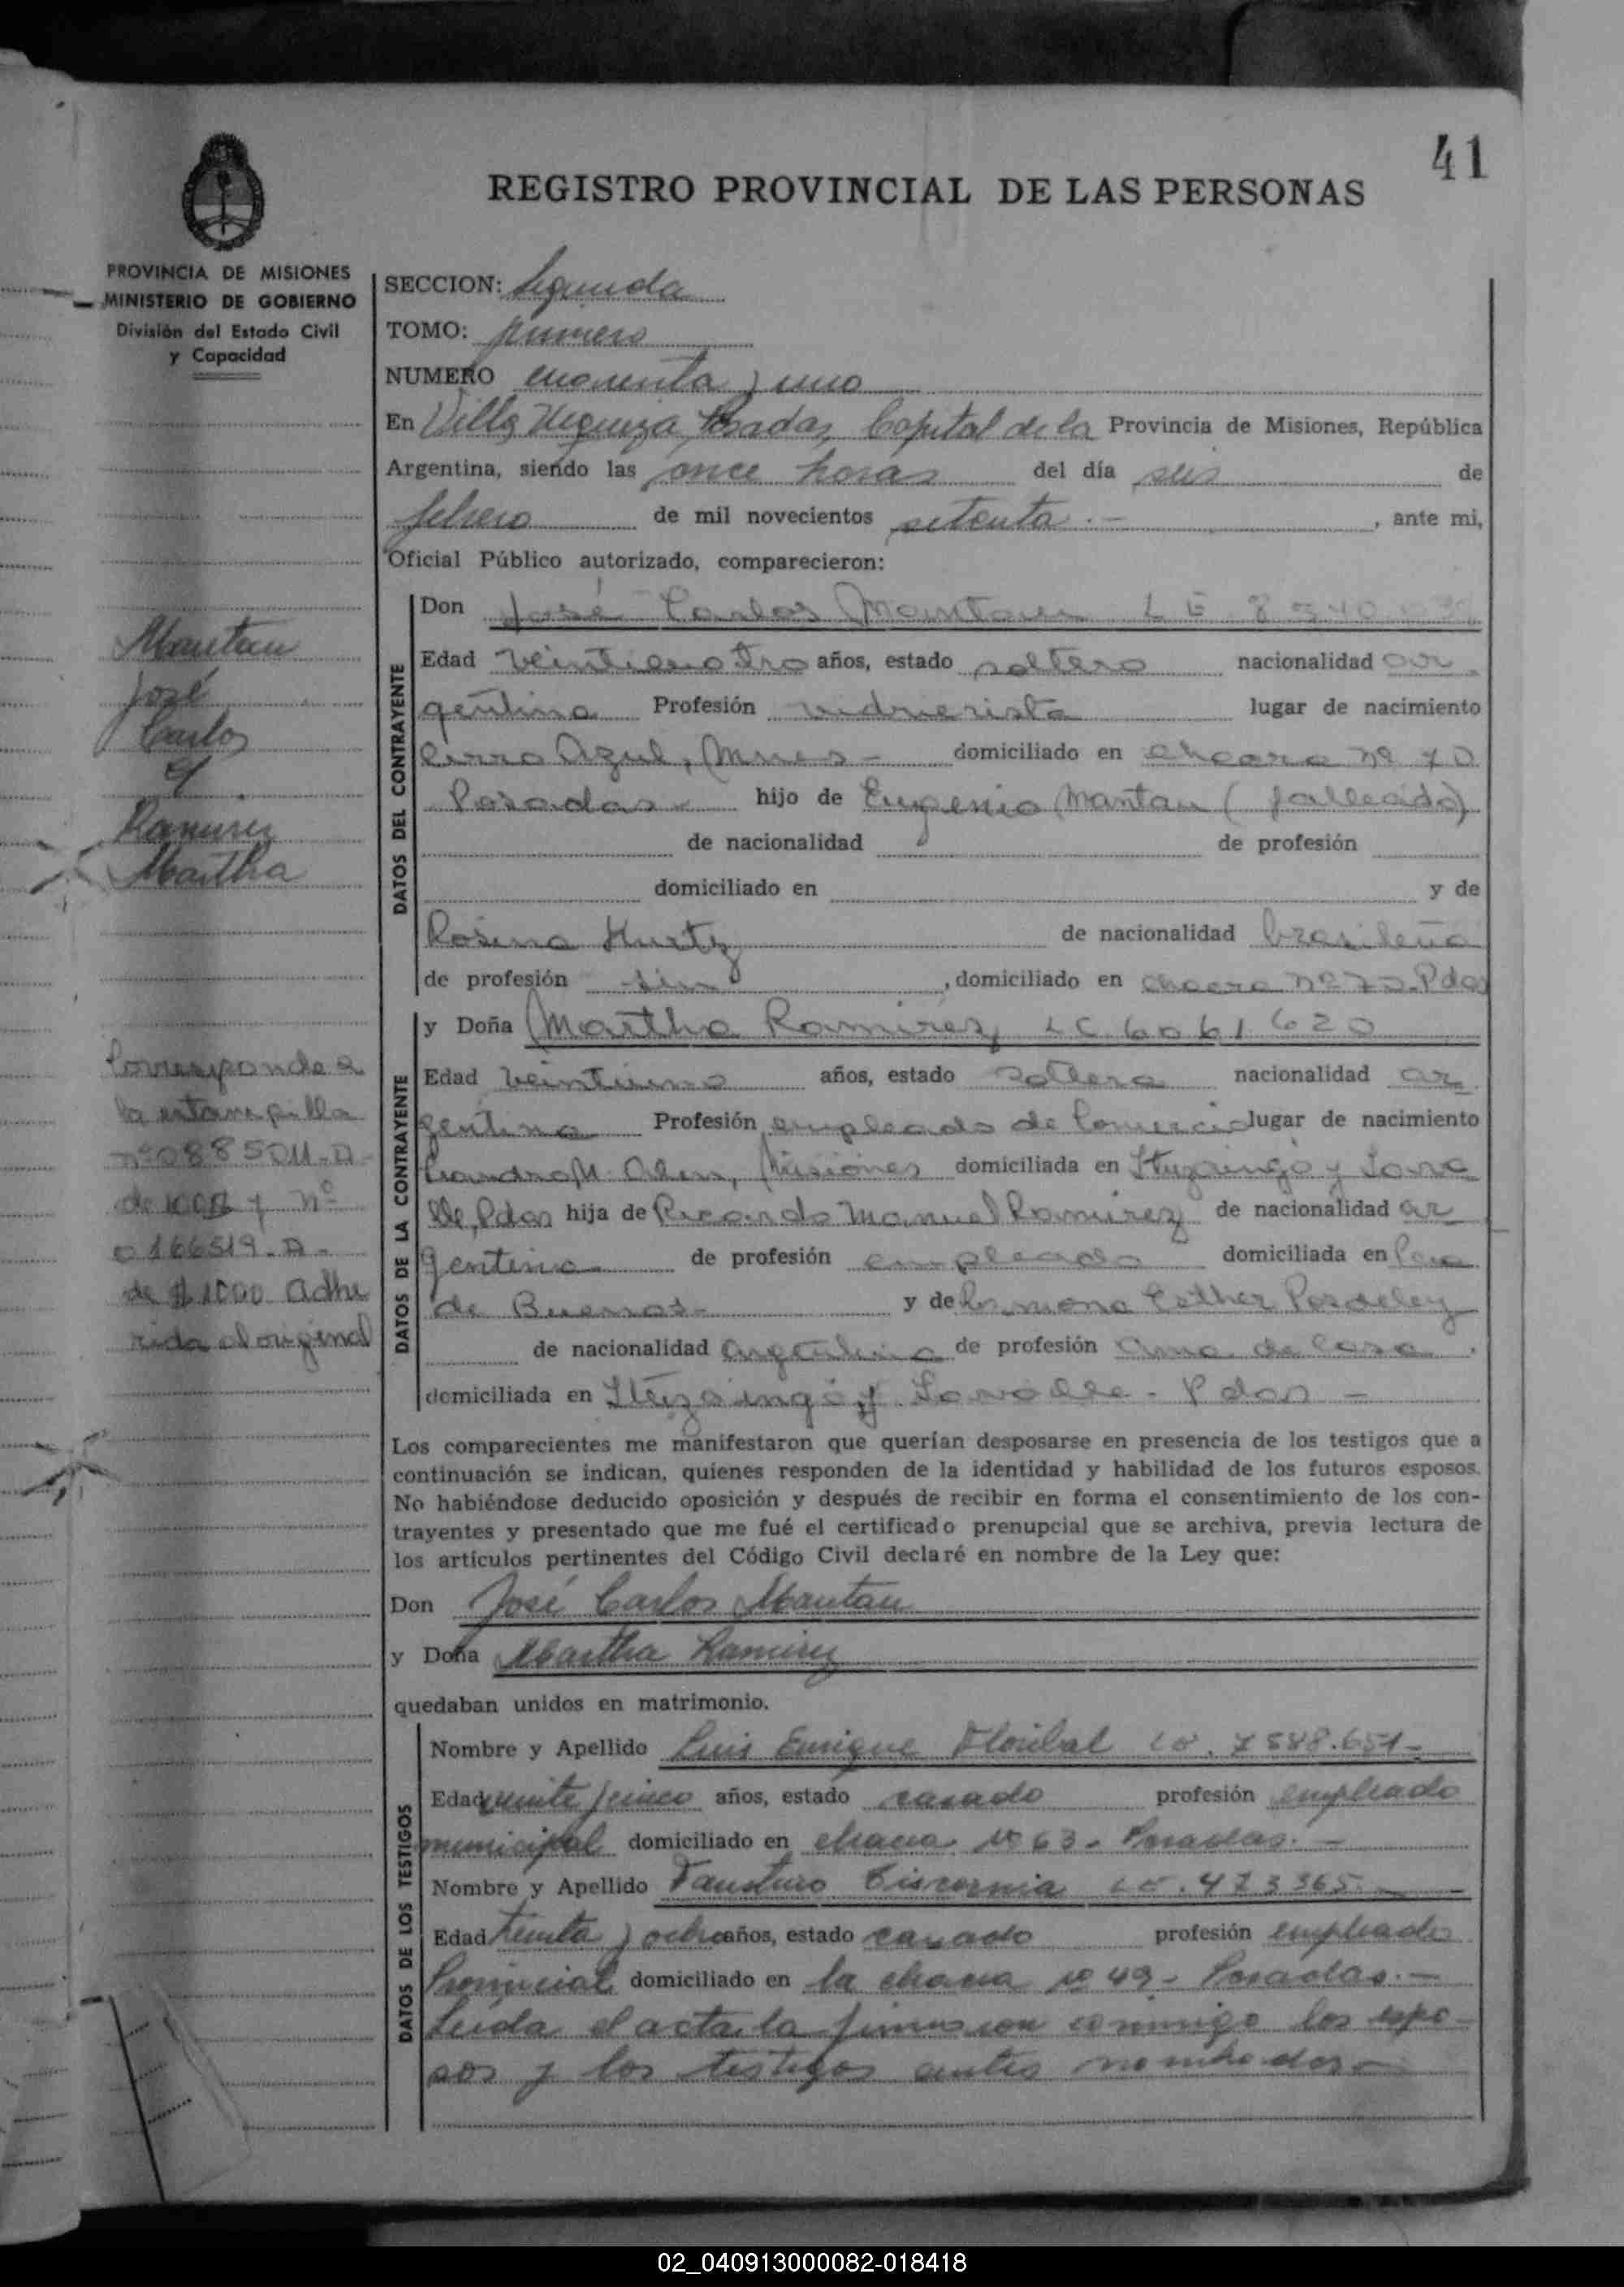 41
REGISTRO PROVINCIAL DE LAS PERSONAS
PROVINCIA DE MISIONES
MINISTERIO DE GOBIERNO
División del Estado Civil
y Capacidad
SECCION: Segunda
TOMO: primero
NUMERO cuarenta y uno
En Villa Urquiza, Posadas, Capital de la Provincia de Misiones, República
Argentina, siendo las once horas del día seis de
febrero de mil novecientos setenta.- , ante mi,
Oficial Público autorizado, comparecieron:
Mantau
José
Carlos
y
Ramirez
Martha
DATOS DEL CONTRAYENTE
Don José Carlos Mantau L E
Edad veinticuatro años, estado soltero nacionalidad ar
gentina Profesión vidrierista lugar de nacimiento
Cerro Azul, Mnes - domiciliado en chacra nº 70
Posadas - hijo de Eugenio Mantau (fallecido)
de nacionalidad de profesión
domiciliado en y de
Rosina Hurtz de nacionalidad brasileña
de profesión sin , domiciliado en chacra nº 70. Pdas
Corresponde a
la estampilla
de y nº
0166519.A.
de $ 1000 adhe
rida al original
DATOS DE LA CONTRAYENTE
y Doña Martha Ramirez L C 6061620
Edad veintiuno años, estado soltera nacionalidad ar
gentina Profesión empleada de Comercio lugar de nacimiento
Leandro N. Alem, Misiones domiciliada en Ituzaingó y Lava
lle, Pdas hija de Ricardo Manuel Ramirez de nacionalidad ar
gentina de profesión empleado domiciliada en Pcia
de Buenos- y de Ramona Esther
de nacionalidad argentina de profesión ama de casa.
domiciliada en Ituzaingó y Lavalle - Pdas -
Los comparecientes me manifestaron que querían desposarse en presencia de los testigos que a
continuación se indican, quienes responden de la identidad y habilidad de los futuros esposos.
No habiéndose deducido oposición y después de recibir en forma el consentimiento de los con-
trayentes y presentado que me fué el certificado prenupcial que se archiva, previa lectura de
los artículos pertinentes del Código Civil declaré en nombre de la Ley que:
Don José Carlos Mantau
y Doña Martha Ramirez
quedaban unidos en matrimonio.
DATOS DE LOS TESTIGOS
Nombre y Apellido Luis Enrique Floribal LE. 7588.651-
Edad veinte y cinco años, estado casado profesión empleado
municipal domiciliado en chacra Nº 63 - Posadas. -
Nombre y Apellido Faustino Biscornia LE. 473365 -
Edad treinta y ocho años, estado casado profesión empleado
Provincial domiciliado en la chacra Nº 49 - Posadas. -
Leída el acta la firman con conmigo los espo-
sos y los testigos antes nombrados -
02_040913000082-018418